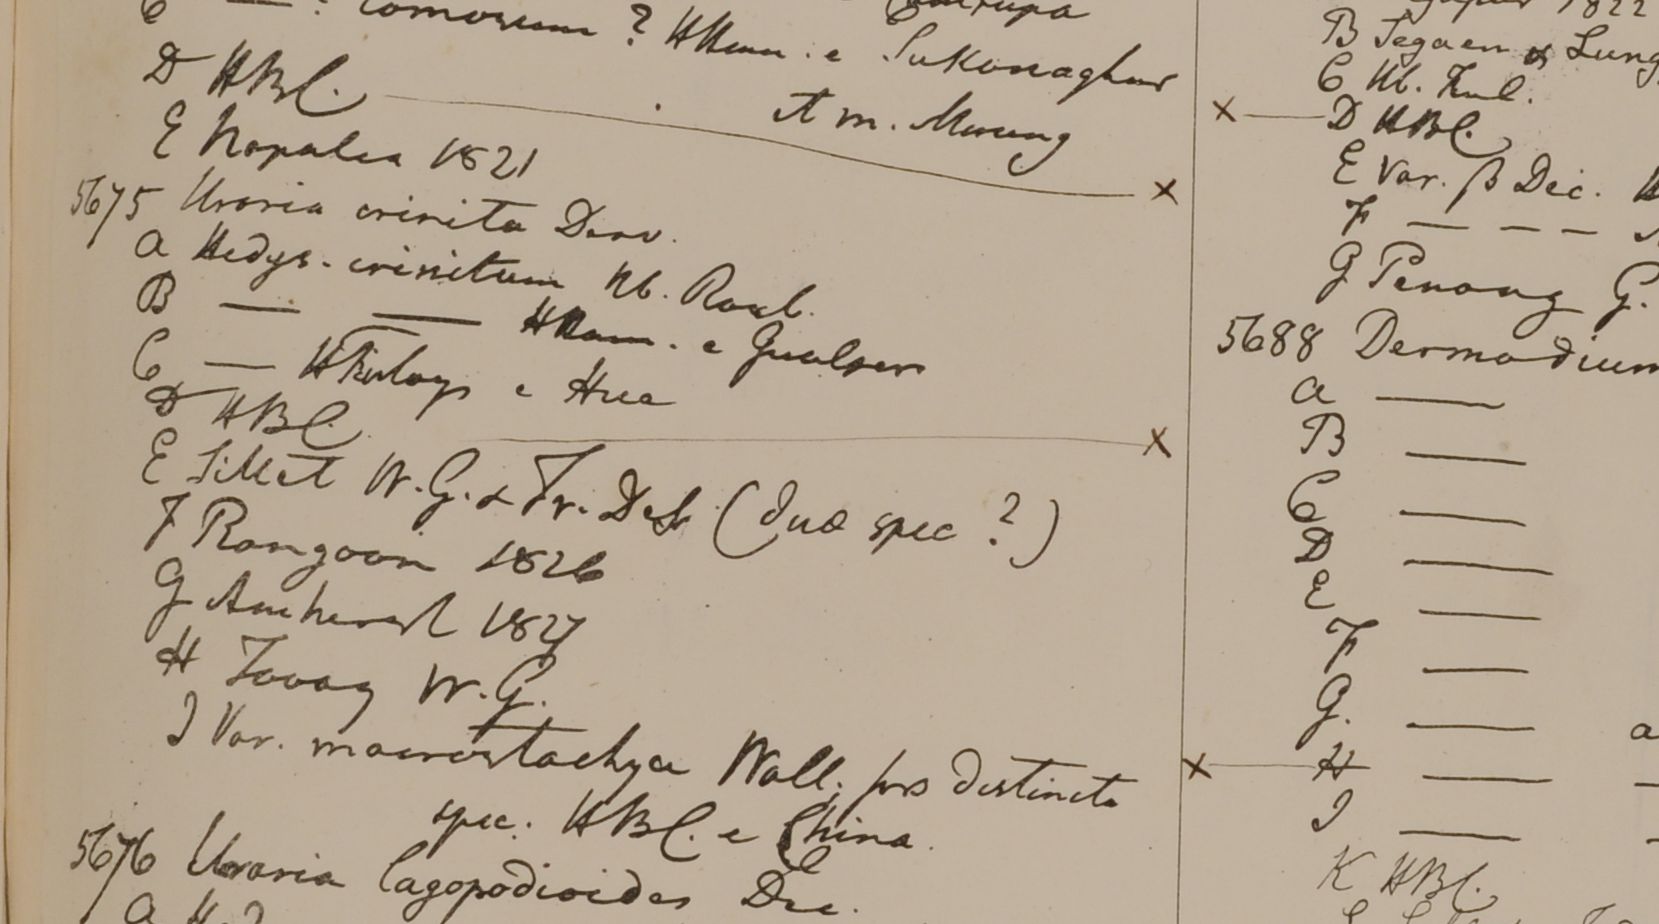 C — ? comosum ? HHam. e Sukanaghur
D HBC. × 
At m. Morung
E Napalia 1821
5675 Uraria crinita Desv.
a Hedys. crinitum Hb. Roxb.
B — — HHam. e Gualpara
C — HFinlays e Hue
D HBC. ×
E Sillet W.G. & Fr. DeS. (duæ spec ?)
F Rangoon 1826
G Amherst 1827
H Tavoy W.G.
I Var. macrostachya Wall; fors distincta
spec. HBC. e China.
5676 Uraria lagopodioides Dec.
a
1822
B Segaen & Lung
C Hb. Ful.
× D HBC.
E Var. β Dec. H
F — — — —
G Penang G.
5688 Desmodium
a —
B —
C —
D —
E —
F —
G. — a
× H — —
I — —
K HBC.